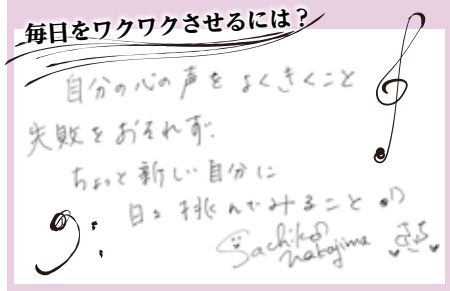 毎日をワクワクさせるには？
自分の心の声をよくきくこと
失敗をおそれず、
ちょっと新しい自分に
日々挑んでみること♪
Sachiko
Nakajima
さち